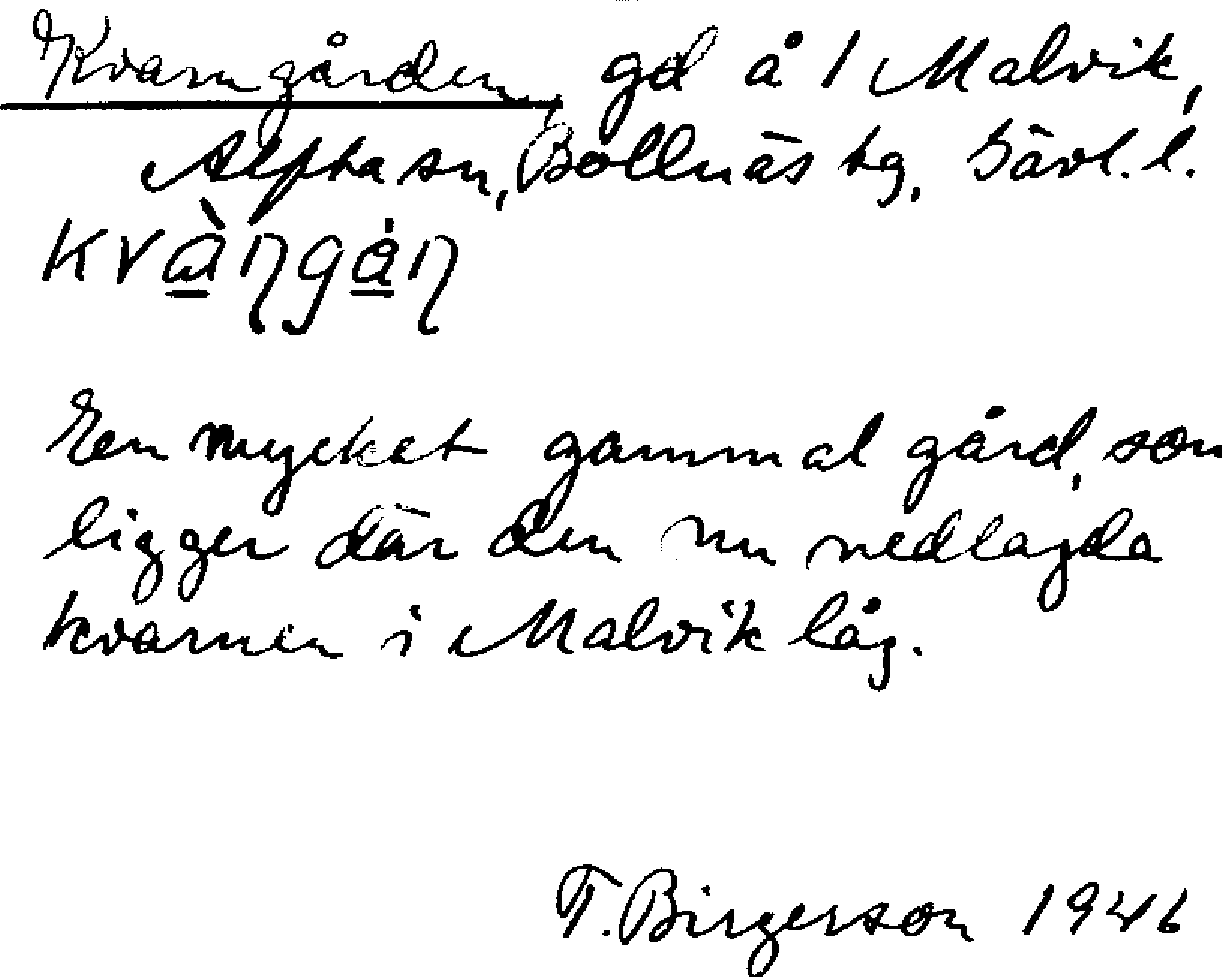 Kvarngården, gd å 1 Malvik,
Alfta sn, Bollnäs tg, Gävl. l.
kvàŋgȧŋ
En mycket gammal gård, som
ligger där den nu nedlagda
kvarnen i Malvik låg.
T. Birgerson 1946